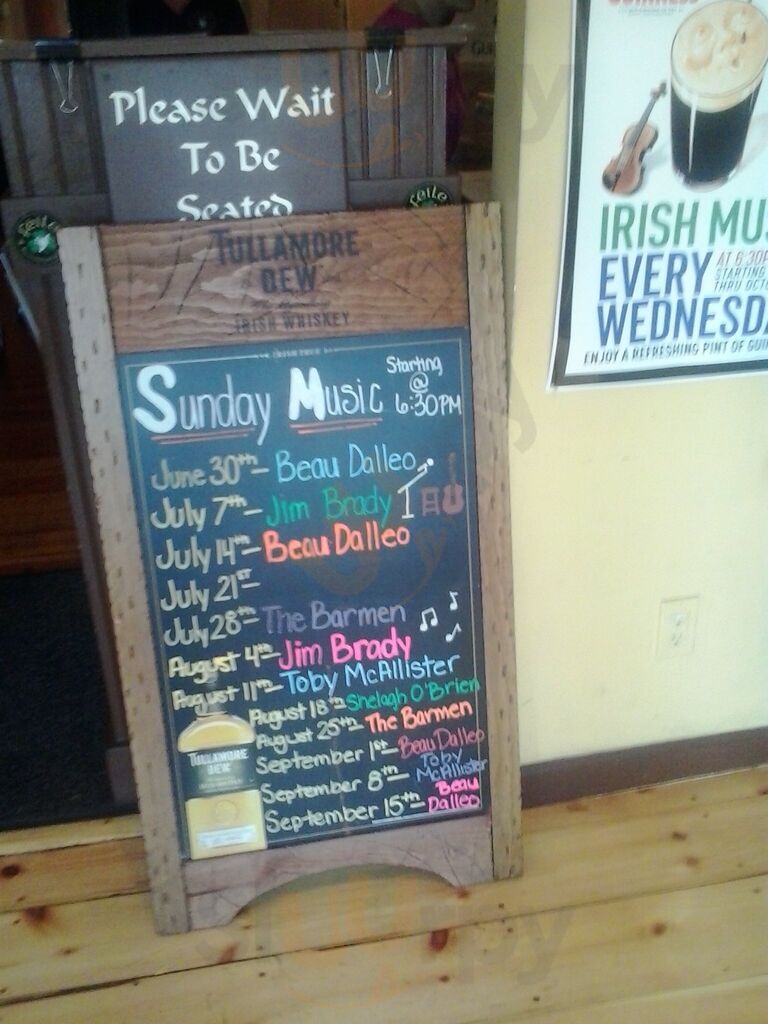 Please Wait
To Be
Seated
FEILE
TULLAMORE
DEW
IRISH WHISKEY
Sunday Music
Starting
@
6:30PM
June 30th - Beau Dalleo
July 7th - Jim Brady
July 14th - Beau Dalleo
July 21st -
July 28th - The Barmen
August 4th - Jim Brady
August 11th - Toby McAllister
August 18th - Shelagh O'Brien
August 25th - The Barmen
September 1st - Beau Dalleo
September 8th - Toby McAllister
September 15th - Beau Dalleo
TULLAMORE
DEW
GUINNESS
IRISH MU
EVERY
AT 6:30P
STARTING
THRU OCT
WEDNESDA
ENJOY A REFRESHING PINT OF GUI